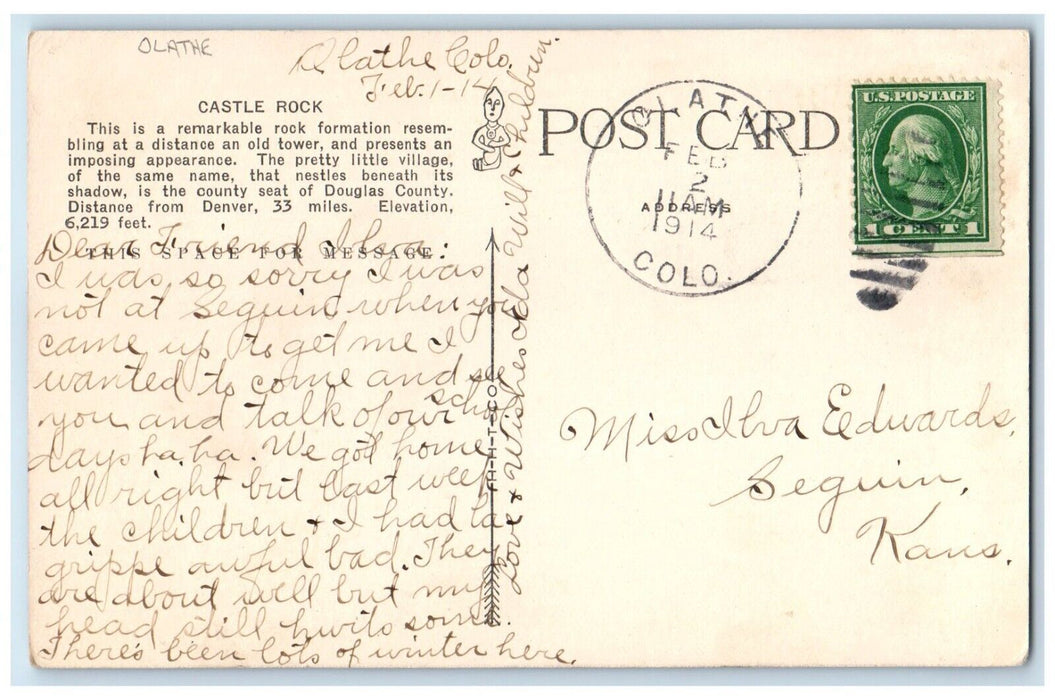 OLATHE
Olathe Colo.
Feb. 1-14
CASTLE ROCK
This is a remarkable rock formation resem-
bling at a distance an old tower, and presents an
imposing appearance. The pretty little village,
of the same name, that nestles beneath its
shadow, is the county seat of Douglas County.
Distance from Denver, 33 miles. Elevation,
6,219 feet.
THIS SPACE FOR MESSAGE
Dear Friend Ilva:
I was so sorry I was
not at Seguin when you
came up to get me I
wanted to come and see
you and talk of our school
days ha. ha. We got home
all right but last week
the children + I had la
grippe awful bad. They
are about well but my
head still hurts some.
There's been lots of winter here.
Love + Wishes Ida Will + Children.
POST CARD
ADDRESS
OLATHE
FEB
2
11 AM
1914
COLO.
U.S. POSTAGE
1 CENT 1
Miss Ilva Edwards,
Seguin,
Kans.